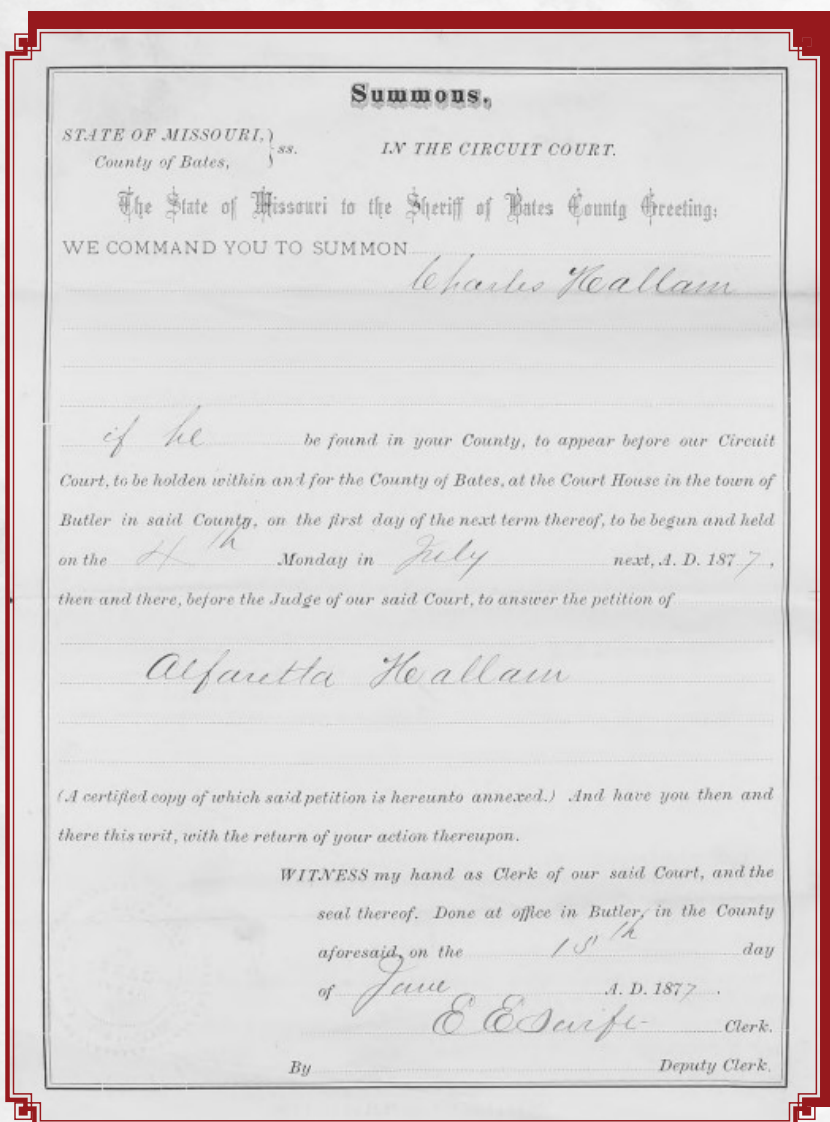 Summons.
STATE OF MISSOURI, } ss. IN THE CIRCUIT COURT.
County of Bates,
The State of Missouri to the Sheriff of Bates County Greeting:
WE COMMAND YOU TO SUMMON
Charles Hallam
if he be found in your County, to appear before our Circuit
Court, to be holden within and for the County of Bates, at the Court House in the town of
Butler in said County, on the first day of the next term thereof, to be begun and held
on the 4th Monday in July next, A. D. 1877,
then and there, before the Judge of our said Court, to answer the petition of
Alfaretta Hallam
(A certified copy of which said petition is hereunto annexed.) And have you then and
there this writ, with the return of your action thereupon.
WITNESS my hand as Clerk of our said Court, and the
seal thereof. Done at office in Butler, in the County
aforesaid, on the 15th day
of June A. D. 1877.
E E Swift Clerk.
By Deputy Clerk.